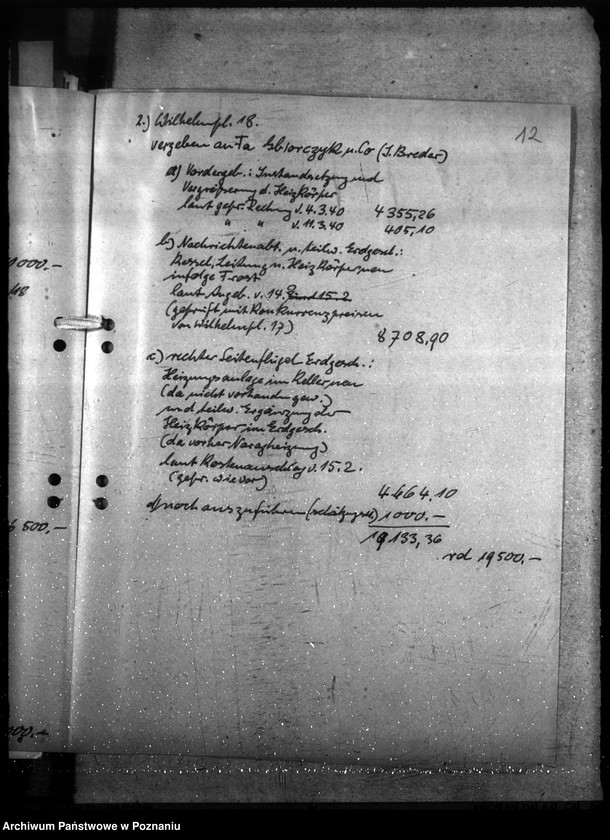 12
2.) Wilhelmpl. 18.
vergeben an Fa Zbiorczyk u. Co (J. Breder)
a) Vordergeb.: Instandsetzung und
Vergrößerung d. Heizkörper
laut gepr. Rechng v. 4.3.40 4 355,26
" " v. 11.3.40 405,10
b.) Nachrichtenabt. u. teilw. Erdgesch.:
Kessel, Leitung u. Heizkörper neu
infolge Frost
laut Angeb. v. 14. 2. und 15.2
(geprüft mit Konkurrenzpreisen
von Wilhelmpl. 17) 8 708,90
c.) rechter Seitenflügel Erdgesch.:
Heizungsanlage im Keller neu
(da nicht vorhanden gew.)
und teilw. Ergänzung der
Heizkörper im Erdgesch.
(da vorher Naragheizung)
laut Kostenanschlag v. 15.2.
(gepr. wie vor) 4 664.10
d) noch auszuführen (schätzungsw.) 1 000.-
19 133,36
rd 19 500.-
1 000.-
48
6 500.-
000.-
Archiwum Państwowe w Poznaniu